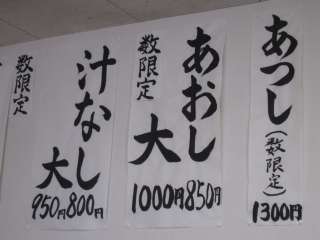 あつし(数限定)
1300円
あおし
850円
大
1000円
数限定
汁なし
800円
大
950円
数限定